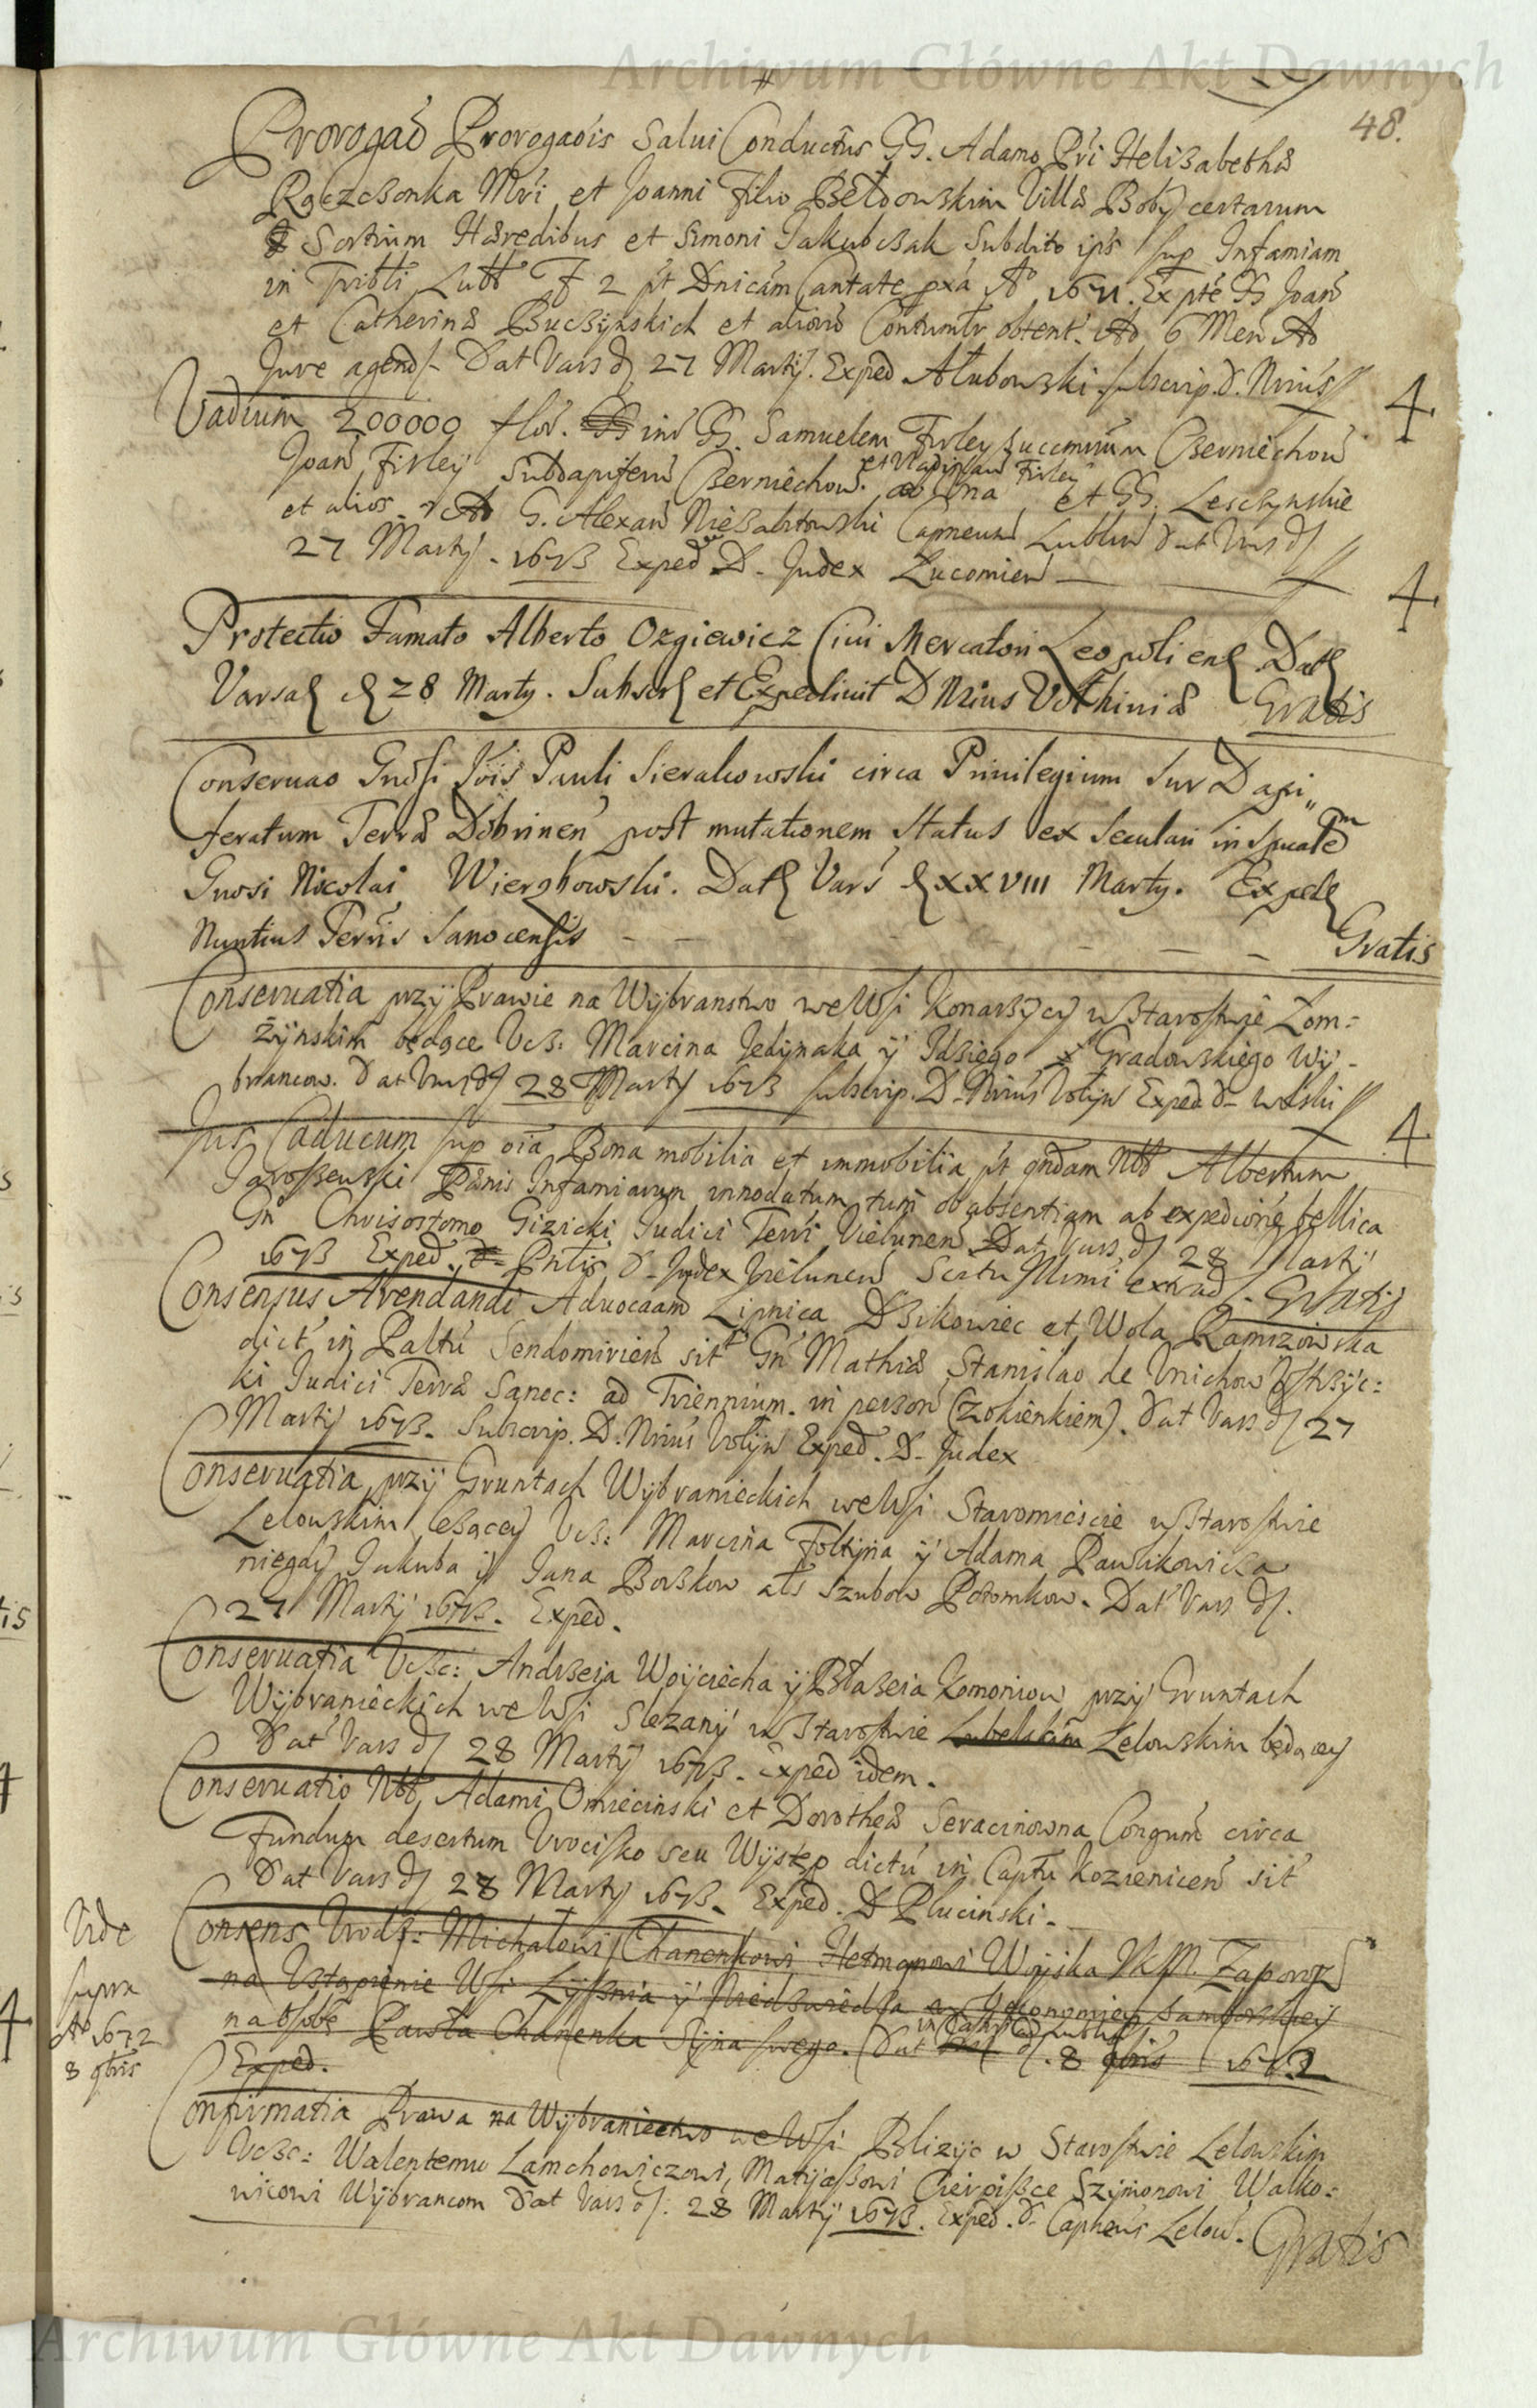 Archiwum Główne Akt Dawnych
48.
Prorogaõ Prorogaõis Salui Conductus GG. Adamo Pri Helisabethæ
Raczchonka Mri et Joanni Filio Bełdowskim Villæ Boby certarum
Sortium Hæredibus et Simoni Jakubczak Subdito ips sup Infamiam
in Tribli Lubl F 2 pt Dnicam Cantate pxa Ao 1671. Ex pte GG Joan
et Catherinæ Buczynskich et alior Contumlr obtent. Ad 6 Men Ad
Jure agend Dat Vars d 27 Martij. Exped Ałubowski subscrip. D. Nrius
4.
Vadium 200000 flor. int GG. Samuelem Firley Succamerum Czerniechow
Joan Firleÿ Subdapiferu Czerniechow. et Vladislau Firley ab una et GG. Lesczynskie
et alios. Ad G. Alexan Niezabitowski Capneum Lublin Dat Vars d
27 Martij. 1673 Exped D. Judex Lucorien
4.
Protectio Famato Alberto Ozgiewicz Ciui Mercatori Leopolien Dat
Varsa d 28 Marty. Subscr et Expediuit D Nrius Volhiniæ Gratis
Conseruao Gnosi Jois Pauli Sierakowski circa Priuilegium Sur Dapi„
feratum Terræ Dobrinen post mutationem Status ex Seculari in Spualem
Gnosi Nicolai Wierzbowski. Dat Vars d XXVIII Marty. Exped
Nuntius Terris Sanocensis Gratis
Conseruatia przÿ Prawie na Wybranstwo we Wsi Konarzycy w Starostwie Łom=
żÿnskim będące Vcz: Marcina Jedÿnaka ÿ Idziego Gradowskiego Wy-
brancow. Dat Vars d 28 Martÿ 1673 subscrip. D. Nrius Volÿn Exped D. Wolski
4.
Jus Caducum sup oia Bona mobilia et immobilia pt qndam Nbl Albertum
Jaroszewski Pænis Infamiarum innodatum tum ob absentiam ab expedicione bellica
Gn Chrisostomo Gizicki Judici Terri Vielunen Dat Vars d 28 Martÿ
1673 Exped. Prntis D. Judex Vielunen Scrtu Mmi extrad. Gratis
Consensus Arendandi Aduocaam Lipnica Dzikowiec et Wola Ranizowska
dict in Paltu Sendomirien sit Gn Mathiæ Stanislao de Vnichow Vstrzÿc=
ki Judici Terræ Sanoc: ad Triennium. in person (z okienkiem). Dat Vars d 27
Martÿ 1673. Subscrip. D. Nrius Volÿn Exped. D. Judex
Conseruatia przÿ Gruntach Wÿbranieckich we Wsi Staromiescie w Starostwie
Lelowskim lezącey Vcz: Marcina Foltÿna ÿ Adama Pawlikowicza
niegdy Jakuba ÿ Jana Borzkow als Szubow Potomkow. Dat Vars d.
27 Martÿ 1673. Exped.
Conseruatia Vczc: Andrzeja Woÿciecha ÿ Błazeia Komoniow przÿ Gruntach
Wÿbranieckich we Wsi Slezanÿ w Starostwie Lubelskim Lelowskim będącey
Dat Vars d 28 Martÿ 1673. Exped idem.
Conseruatio Nbl Adami Omiecinski et Dorotheæ Seracinowna Congum circa
Fundum desertum Vrocisko seu Wÿstęp dictu in Captu Kozienicen sit
Dat Vars d 28 Martÿ 1673. Exped. D Plucinski.
Vide
supra
Ao 1672
8 qbris
4
Consens Vrodz: Michałowi Chanenkowi Hetmanowi Woÿska JKM. Zaporoz
na Vstąpienie Wsi Łÿsznia ÿ Niedzwiedza Oeconomiey Samborskiej
na osobę Pawła Chanenka Sÿna swego. Dat in Castris ad Lublin d. 8 qbris 1672
Exped.
Confirmatia Prawa na Wÿbraniectwo we Wsi Blizÿc w Starostwie Lelowskim
Vczc: Walentemu Lamchowiczowi, Matÿaszowi Cierpiszce Szÿmonowi Walko=
wicowi Wÿbrancom Dat Vars d. 28 Martÿ 1673. Exped. D. Capneus Lelow. Gratis
Archiwum Główne Akt Dawnych